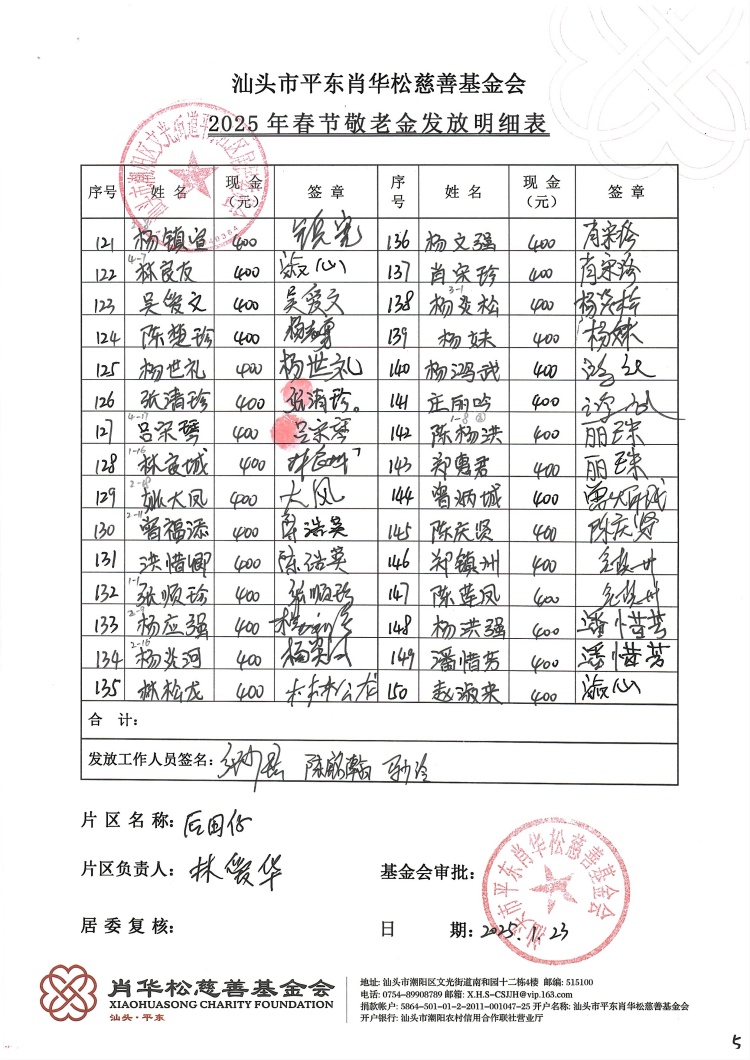 汕头市平东肖华松慈善基金会
2025年春节敬老金发放明细表
序号 姓名 现金（元） 签章 序号 姓名 现金（元） 签章
121 杨镇宣 400 136 杨文强 400 肖宋珍
4-7
122 林良友 400 淑心 137 肖宋珍 400 肖宋珍
3-1
123 吴爱文 400 吴爱文 138 杨炎松 400
124 陈楚珍 400 139 杨妹 400 杨妹
125 杨世礼 400 杨世礼 140 杨鸿武 400
126 张清珍 400 张清珍。 141 庄丽吟 400
4-17 1-8
127 吕宋琴 400 吕宋琴 142 陈杨洪 400 丽珠
1-16
128 林良城 400 143 郑惠君 400 丽珠
2-18
129 姚大凤 400 大凤 144 曾炳城 400 曾炳城
2-11
130 曾福添 400 陈浩英 145 陈庆贤 400 陈庆贤
131 洪惜卿 400 陈浩英 146 郑镇州 400
1-1
132 张顺珍 400 张顺珍 147 陈莲凤 400
2-9
133 杨应强 400 148 杨洪强 400 潘惜芳
2-16
134 杨炎河 400 149 潘惜芳 400 潘惜芳
135 林松龙 400 林松龙 150 赵淑来 400 淑心
合 计：
发放工作人员签名：
片区名称：后田仔
片区负责人：林爱华 基金会审批：
汕头市平东肖华松慈善基金会
居委复核： 日 期：2025.1.23
肖华松慈善基金会
XIAOHUASONG CHARITY FOUNDATION
汕头·平东
地址: 汕头市潮阳区文光街道南和园十二栋4楼 邮编: 515100
电话: 0754-89908789 邮箱: X.H.S-CSJJH@vip.163.com
捐款帐户: 5864-501-01-2-2011-001047-25 开户名称: 汕头市平东肖华松慈善基金会
开户银行: 汕头市潮阳农村信用合作联社营业厅
5